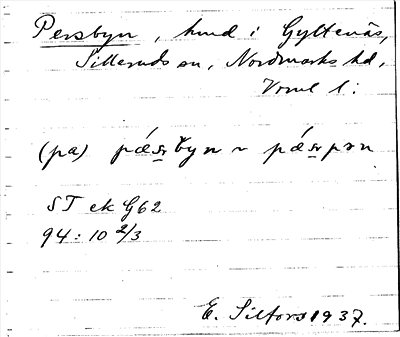 Persbyn, hmd i Gyltenäs,
Silleruds sn, Nordmarks hd,
Vrml l:
(pa)
ST ek G62
94:10 2/3
E. Silfors 1937.